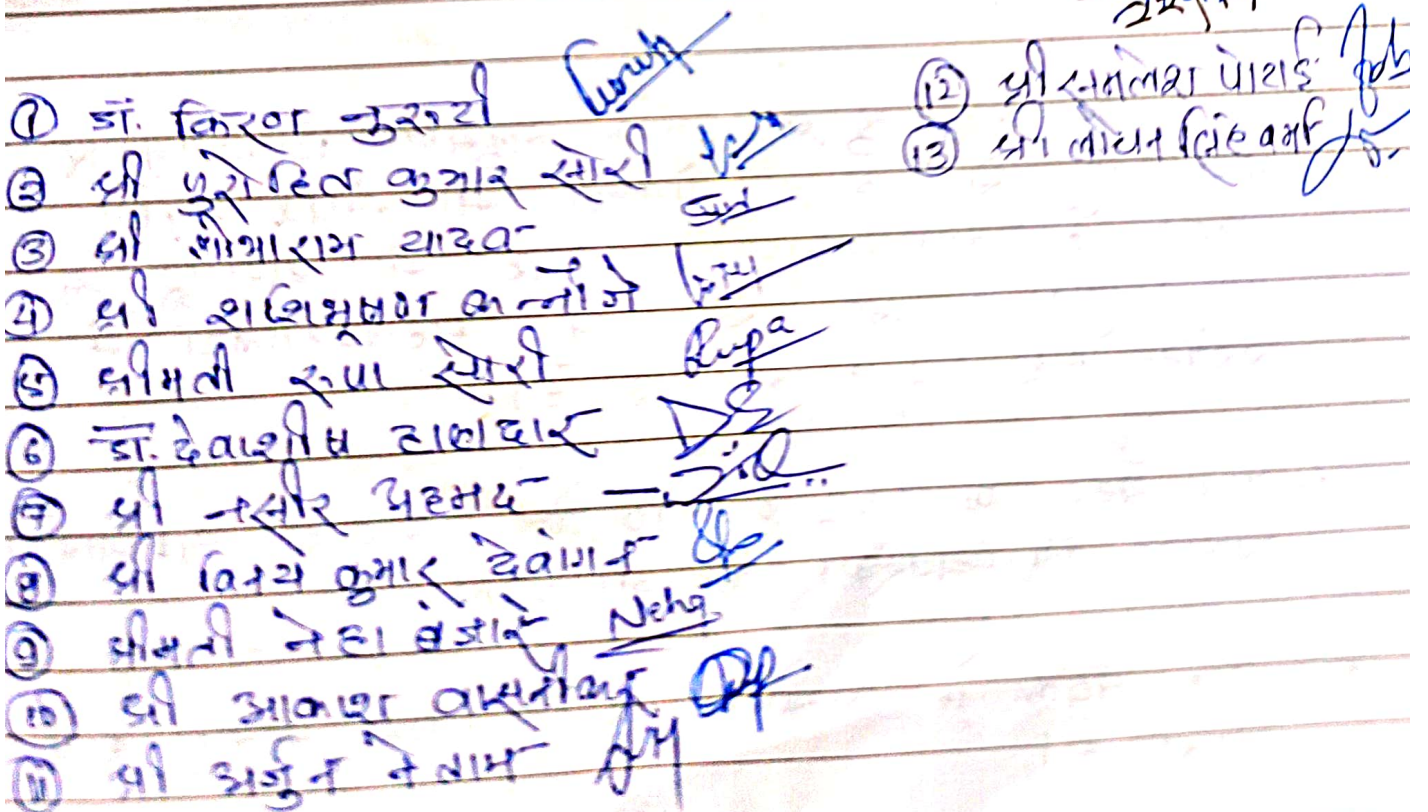 ① डॉ. किरण नुरुटी
② श्री पुरोहित कुमार सोरी
③ श्री शोभाराम यादव
④ श्री शशिभूषण कन्नौजे
⑤ श्रीमती रूपा सोरी Rupa
⑥ डॉ. देवाशीष हालदार
⑦ श्री नसीर अहमद
⑧ श्री विनय कुमार देवांगन
⑨ श्रीमती नेहा बंजारे Neha
⑩ श्री आकाश वासनीकर
⑪ श्री अर्जुन नेताम
⑫ श्री पोटाई
⑬ श्री लोचन सिंह वर्मा